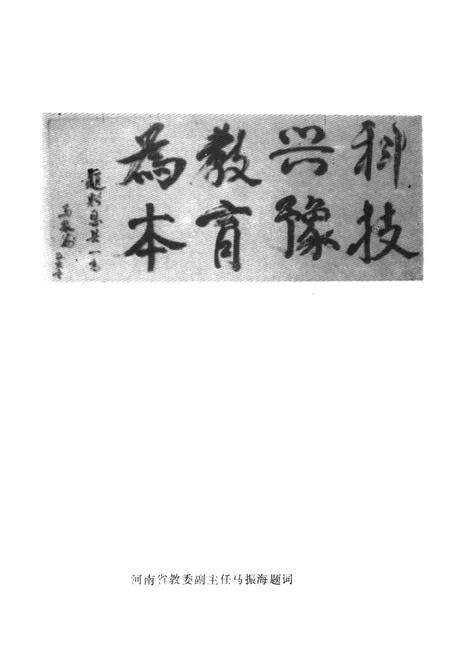 科技
兴豫
教育
為本
题于息县一高
河南省教委副主任马振海题词